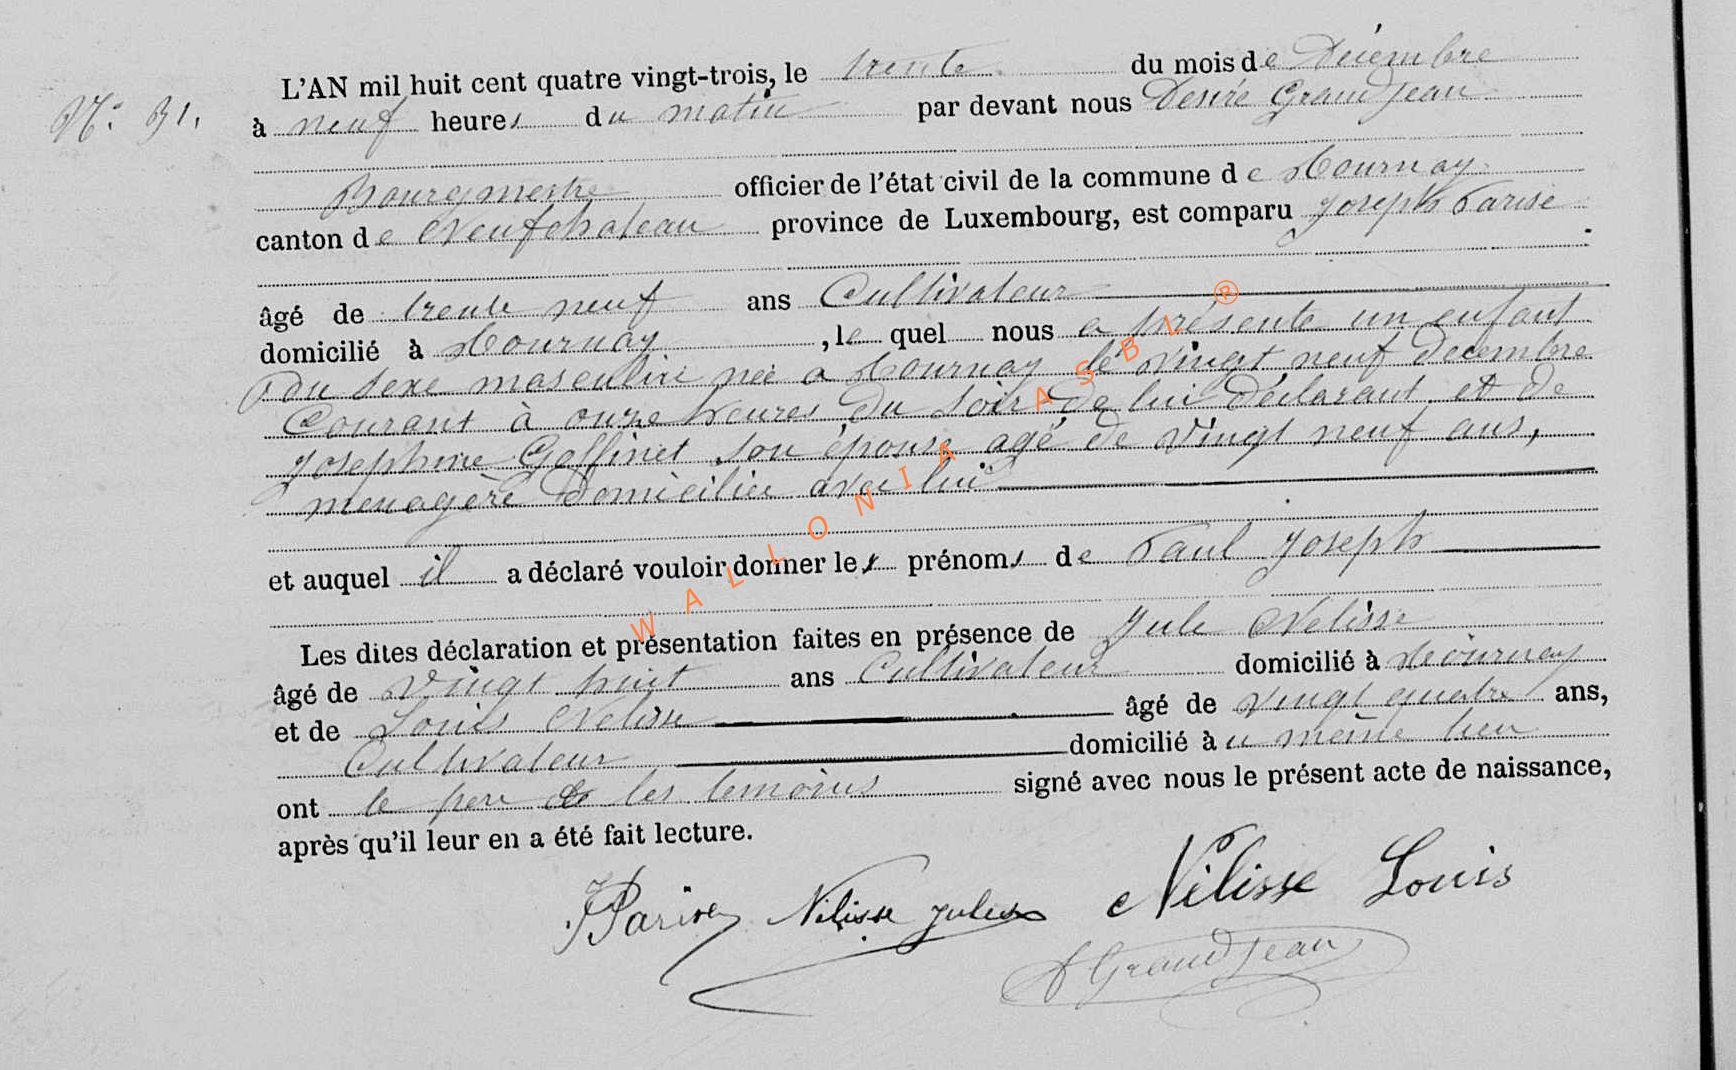 N° 31.
L'AN mil huit cent quatre vingt-trois, le trente du mois de Décembre
à neuf heures du matin par devant nous Désiré Grandjean
Bourgmestre officier de l'état civil de la commune de Tournay
canton de Neufchateau province de Luxembourg, est comparu Joseph Parisé
âgé de trente neuf ans Cultivateur
domicilié à Tournay, le quel nous a présenté un enfant
du sexe masculin née a Tournay le vingt neuf Decembre
Courant à onze heures du soir de lui déclarant et de
Josephine Goffinet son épouse agé de vingt neuf ans,
menagère domiciliée avec lui
et auquel il a déclaré vouloir donner les prénoms de Paul Joseph
Les dites déclaration et présentation faites en présence de Jule Nelisse
âgé de vingt huit ans Cultivateur domicilié à Tournay
et de Louis Nelisse âgé de vingt quatre ans,
Cultivateur domicilié au même lieu
ont le pere et les temoins signé avec nous le présent acte de naissance,
après qu'il leur en a été fait lecture.
JParisé Nilisse Jules Nélisse Louis
D Grandjean
WALLONIA ASBL ®